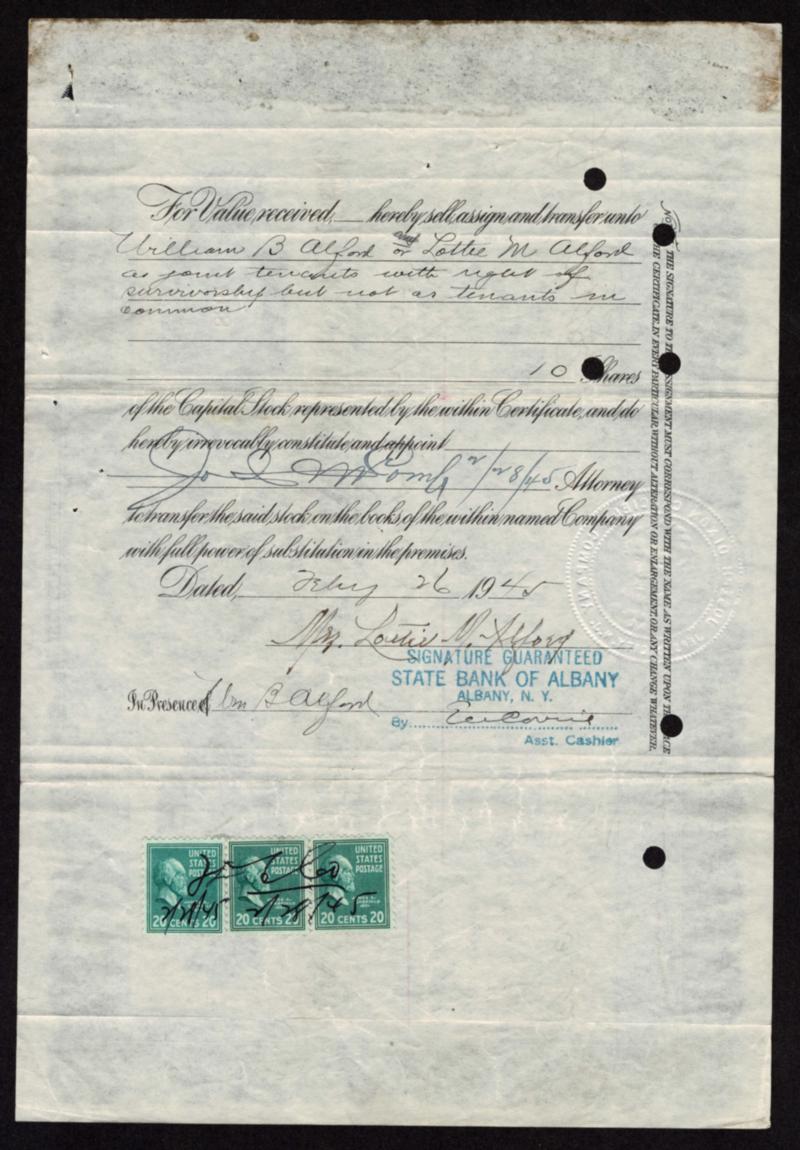 For Value received, hereby sell, assign and transfer unto
William B Alford and or Lottie M Alford
as joint tenants with right of
survivorship but not as tenants in
common
10 Shares
of the Capital Stock represented by the within Certificate, and do
hereby irrevocably constitute and appoint
2/28/45 Attorney
to transfer the said stock on the books of the within named Company
with full power of substitution in the premises.
Dated, Feby 26 1945
Mrs. Lottie M. Alford
SIGNATURE GUARANTEED
STATE BANK OF ALBANY
ALBANY, N. Y.
In Presence of Wm B Alford
By
Asst. Cashier
THE SIGNATURE TO MUST CORRESPOND WITH THE NAME AS WRITTEN UPON
CERTIFICATE, IN EVERY PARTICULAR, WITHOUT ALTERATION OR ENLARGEMENT, OR ANY CHANGE WHATEVER.
UNITED STATES POSTAGE
UNITED STATES POSTAGE
UNITED STATES POSTAGE
2/28/45 2/28/45
20 CENTS 20
20 CENTS 20
20 CENTS 20